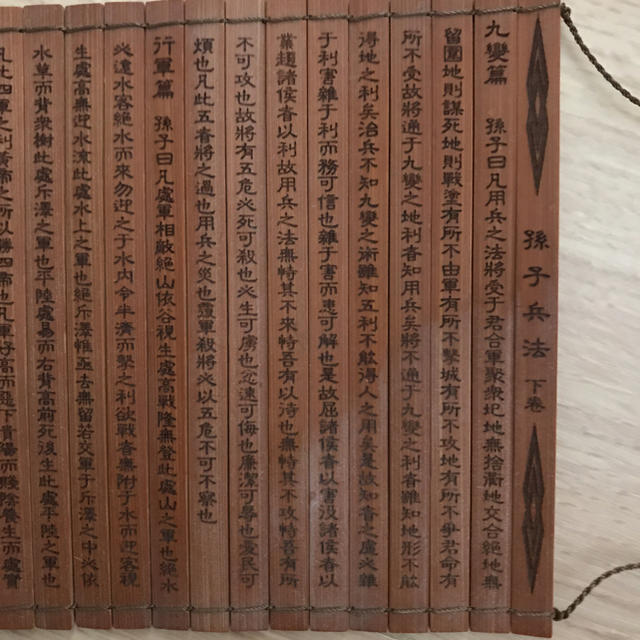 孫子兵法 下卷
九變篇 孫子曰凡用兵之法將受于君合軍聚衆圮地無捨衢地交合絕地無
留圍地則謀死地則戰塗有所不由軍有所不擊城有所不攻地有所不爭君命有
所不受故將通于九變之地利者知用兵矣將不通于九變之利者雖知地形不能
得地之利矣治兵不知九變之術雖知五利不能得人之用矣是故知者之慮必雜
于利害雜于利而務可信也雜于害而患可解也是故屈諸侯者以害役諸侯者以
業趨諸侯者以利故用兵之法無恃其不來恃吾有以待也無恃其不攻恃吾有所
不可攻也故將有五危必死可殺也必生可虜也忿速可侮也廉潔可辱也愛民可
煩也凡此五者將之過也用兵之災也覆軍殺將必以五危不可不察也
行軍篇 孫子曰凡處軍相敵絕山依谷視生處高戰隆無登此處山之軍也絕水
必遠水客絕水而來勿迎之于水內令半濟而擊之利欲戰者無附于水而迎客視
生處高無迎水流此處水上之軍也絕斥澤惟亟去無留若交軍于斥澤之中必依
水草而背衆樹此處斥澤之軍也平陸處易而右背高前死後生此處平陸之軍也
凡此四軍之利黃帝之所以勝四帝也凡軍好高而惡下貴陽而賤陰養生而處實